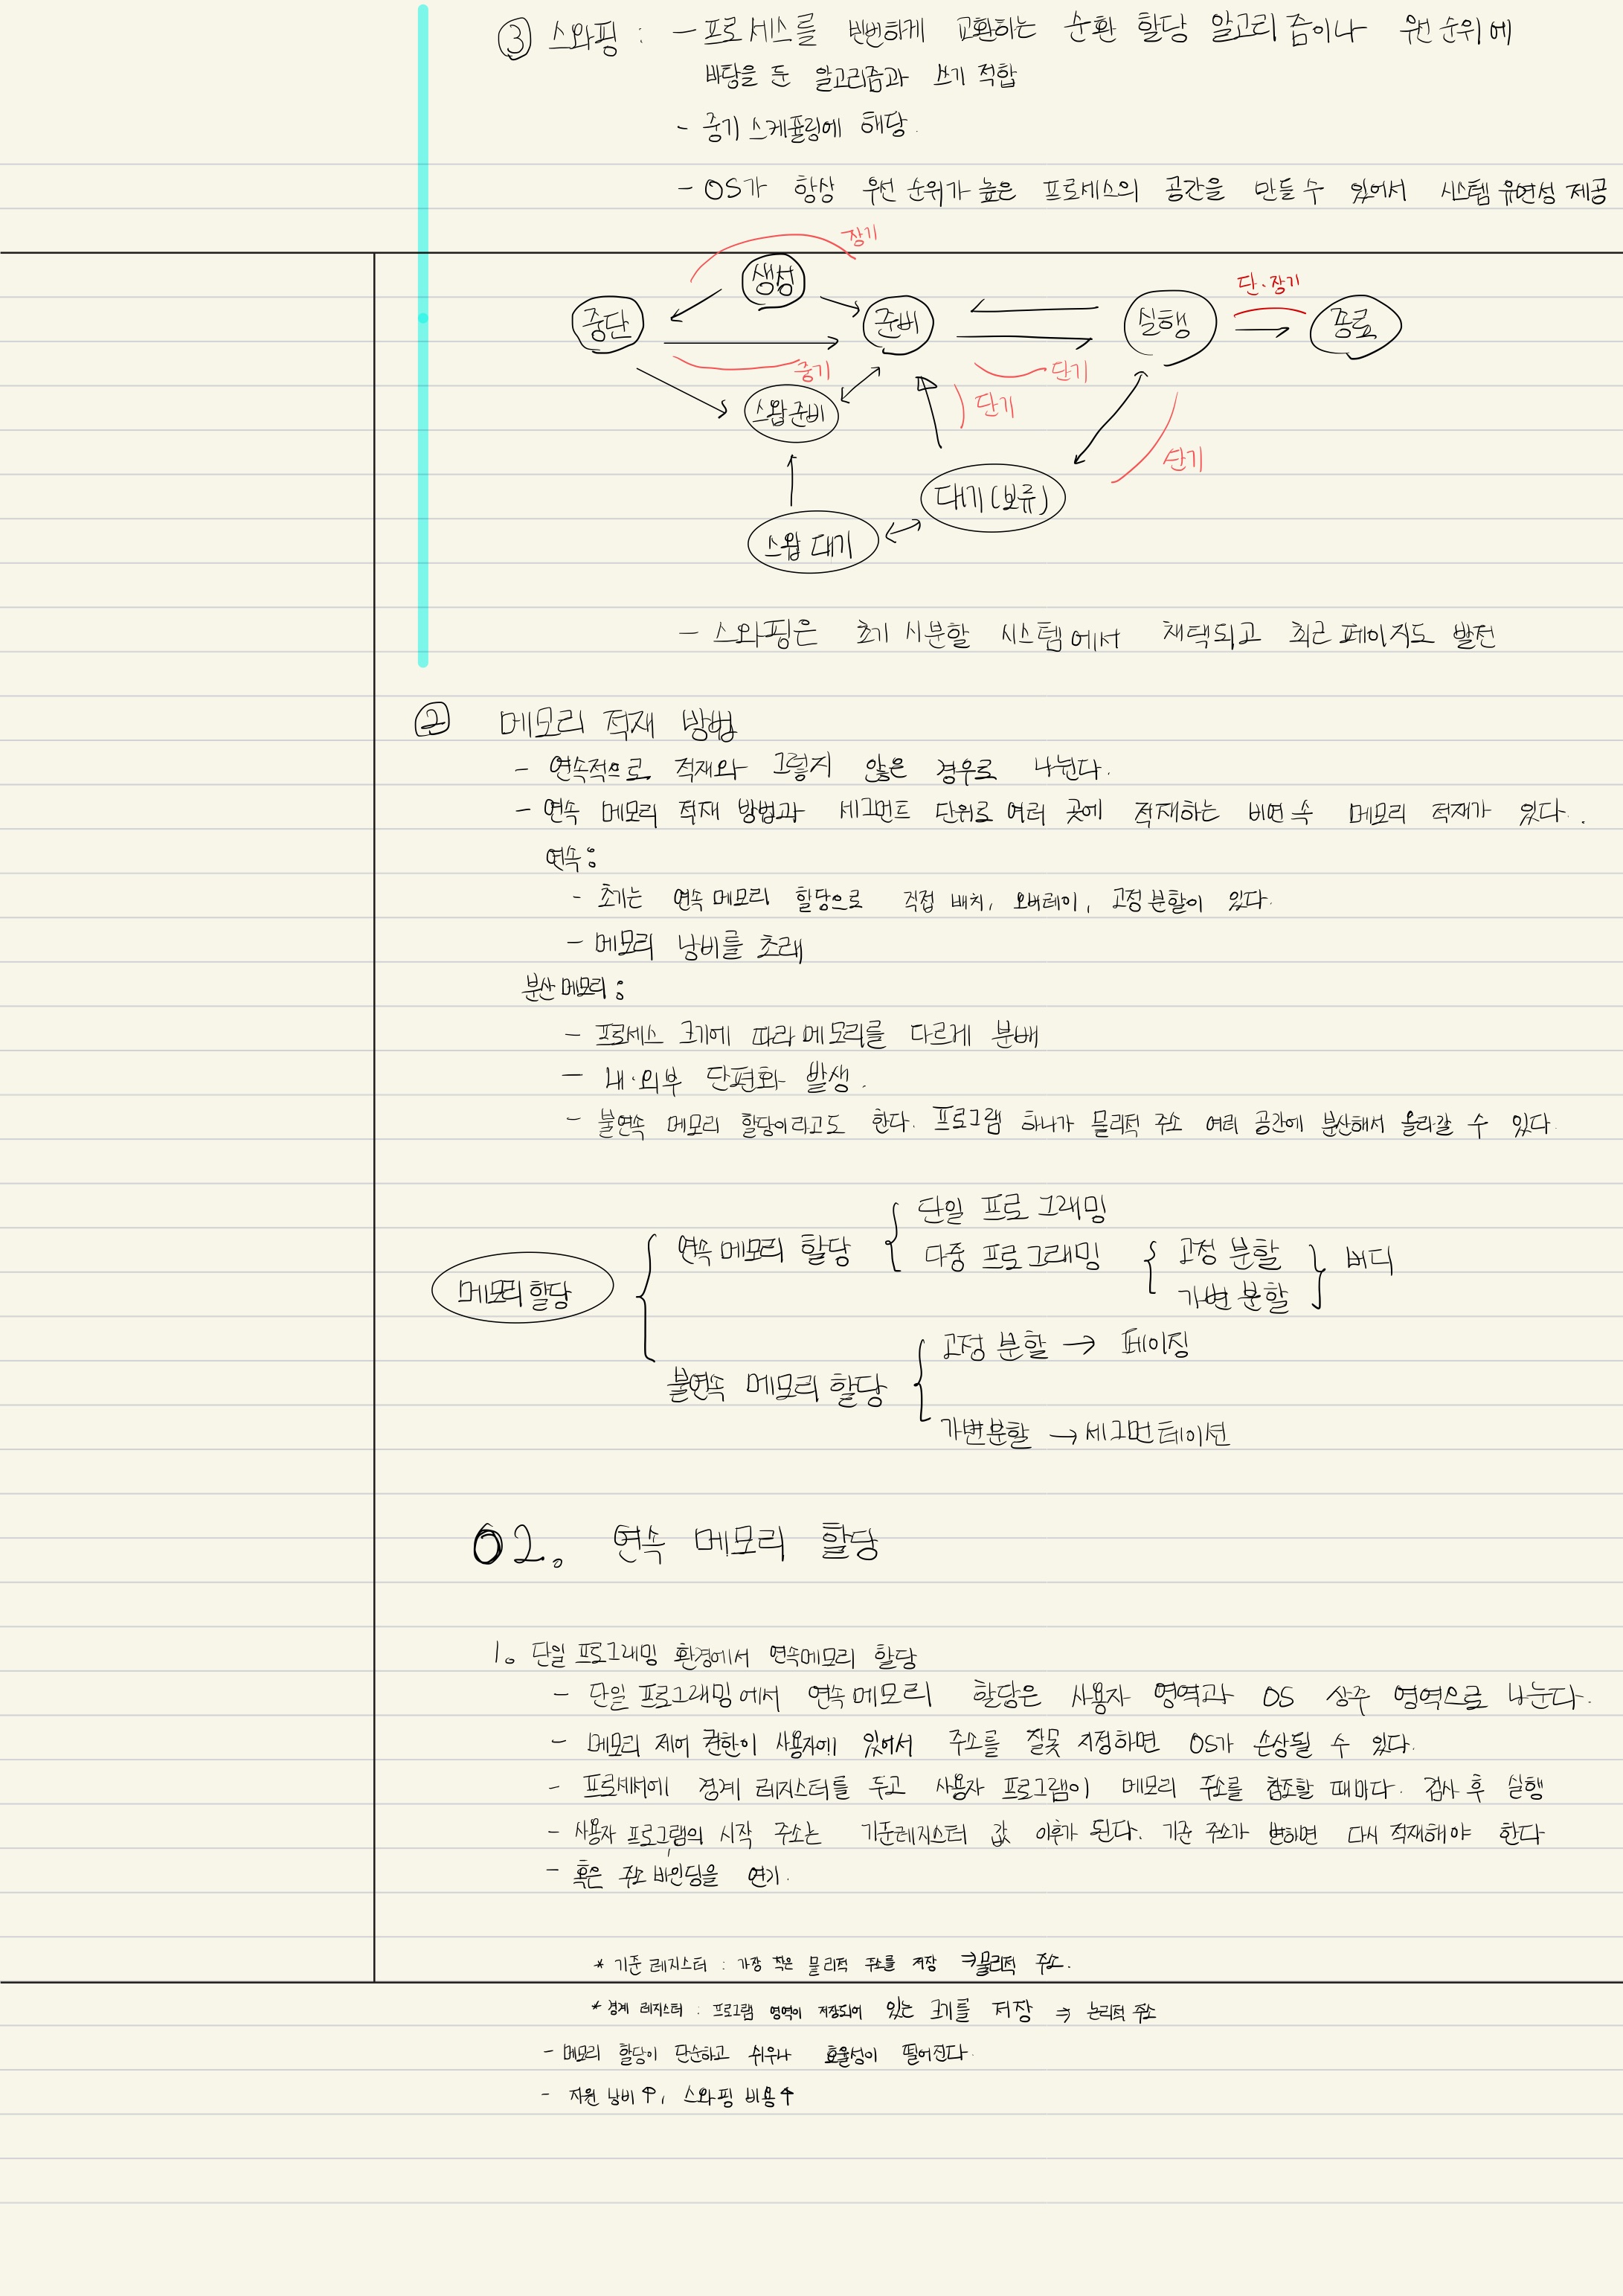 ③ 스와핑 : - 프로세스를 빈번하게 교환하는 순환 할당 알고리즘이나 우선순위에
바탕을 둔 알고리즘과 쓰기 적합
- 중기 스케쥴링에 해당.
- OS가 항상 우선 순위가 높은 프로세스의 공간을 만들 수 있어서 시스템 유연성 제공
장기
생성
단·장기
중단 준비 실행 종료
중기 단기
스왑준비 단기
단기
대기(보류)
스왑 대기
- 스와핑은 초기 시분할 시스템에서 채택되고 최근 페이지도 발전
② 메모리 적재 방법
- 연속적으로 적재와 그렇지 않은 경우로 나뉜다.
- 연속 메모리 적재 방법과 세그먼트 단위로 여러 곳에 적재하는 비연속 메모리 적재가 있다.
연속:
- 초기는 연속 메모리 할당으로 직접 배치, 오버레이, 고정 분할이 있다.
- 메모리 낭비를 초래
분산 메모리:
- 프로세스 크기에 따라 메모리를 다르게 분배
- 내·외부 단편화 발생.
- 불연속 메모리 할당이라고도 한다. 프로그램 하나가 물리적 주소 여러 공간에 분산해서 올라갈 수 있다.
단일 프로그래밍
연속 메모리 할당 다중 프로그래밍 고정 분할 버디
메모리 할당 가변 분할
고정 분할 → 페이징
불연속 메모리 할당
가변분할 → 세그먼테이션
02. 연속 메모리 할당
1. 단일 프로그래밍 환경에서 연속메모리 할당
- 단일 프로그래밍에서 연속 메모리 할당은 사용자 영역과 OS 상주 영역으로 나눈다.
- 메모리 제어 권한이 사용자에 있어서 주소를 잘못 지정하면 OS가 손상될 수 있다.
- 프로세서에 경계 레지스터를 두고 사용자 프로그램이 메모리 주소를 참조할 때마다. 검사 후 실행
- 사용자 프로그램의 시작 주소는 기준레지스터 값 이후가 된다. 기준 주소가 변하면 다시 적재해야 한다
- 혹은 주소 바인딩을 연기.
* 기준 레지스터 : 가장 작은 물리적 주소를 저장 ⇒물리적 주소.
* 경계 레지스터 : 프로그램 영역이 저장되어 있는 크기를 저장 ⇒ 논리적 주소
- 메모리 할당이 단순하고 쉬우나 효율성이 떨어진다.
- 자원 낭비↑, 스와핑 비용↑